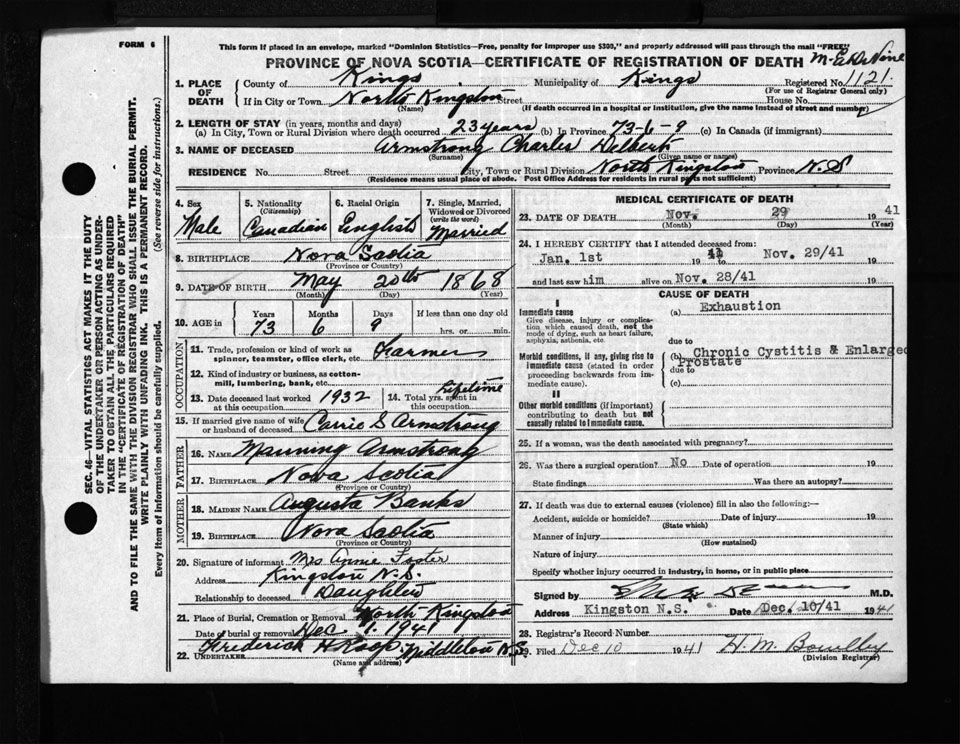 FORM 6
This form if placed in an envelope, marked "Dominion Statistics—Free, penalty for improper use $300," and properly addressed will pass through the mail "FREE"
PROVINCE OF NOVA SCOTIA—CERTIFICATE OF REGISTRATION OF DEATH
1. PLACE OF DEATH
County of Kings Municipality of Kings Registered No. 1121
(For use of Registrar General only)
If in City or Town North Kingston Street House No.
(Name) (If death occurred in a hospital or institution, give the name instead of street and number)
2. LENGTH OF STAY (in years, months and days)
(a) In City, Town or Rural Division where death occurred 23 years (b) In Province 73-6-9 (c) In Canada (if immigrant)
3. NAME OF DECEASED Armstrong Charles Delbert
(Surname) (Given name or names)
RESIDENCE No. Street City, Town or Rural Division North Kingston Province N.S
(Residence means usual place of abode. Post Office Address for residents in rural parts not sufficient)
4. Sex Male
5. Nationality (Citizenship) Canadian
6. Racial Origin English
7. Single, Married, Widowed or Divorced (write the word) Married
8. BIRTHPLACE Nova Scotia
(Province or Country)
9. DATE OF BIRTH May 20th 1868
(Month) (Day) (Year)
10. AGE in Years Months Days If less than one day old
73 6 9 hrs. or min.
OCCUPATION
11. Trade, profession or kind of work as spinner, teamster, office clerk, etc. Farmer
12. Kind of industry or business, as cotton-mill, lumbering, bank, etc.
13. Date deceased last worked at this occupation 1932
14. Total yrs. spent in this occupation Lifetime
15. If married give name of wife or husband of deceased Carrie S Armstrong
FATHER
16. NAME Manning Armstrong
17. BIRTHPLACE Nova Scotia
(Province or Country)
MOTHER
18. MAIDEN NAME Augusta Banks
19. BIRTHPLACE Nova Scotia
(Province or Country)
20. Signature of informant Mrs Annie Foster
Address Kingston N.S.
Relationship to deceased Daughter
21. Place of Burial, Cremation or Removal North Kingston
Date of burial or removal Dec 1, 1941
22. UNDERTAKER Frederick H Roop, Middleton N.S.
(Name and address)
MEDICAL CERTIFICATE OF DEATH
23. DATE OF DEATH Nov. 29 19 41
(Month) (Day) (Year)
24. I HEREBY CERTIFY that I attended deceased from:
Jan. 1st 19 41 Nov. 29/41
and last saw him alive on Nov. 28/41
CAUSE OF DEATH
I
Immediate cause
Give disease, injury or complication which caused death, not the mode of dying, such as heart failure, asphyxia, asthenia, etc.
(a) Exhaustion
due to
Morbid conditions, if any, giving rise to immediate cause (stated in order proceeding backwards from immediate cause).
(b) Chronic Cystitis & Enlarged Prostate
due to
(c)
II
Other morbid conditions (if important) contributing to death but not causally related to immediate cause.
25. If a woman, was the death associated with pregnancy?
26. Was there a surgical operation? No Date of operation 19
State findings Was there an autopsy?
27. If death was due to external causes (violence) fill in also the following:—
Accident, suicide or homicide? Date of injury 19
(State which)
Manner of injury
(How sustained)
Nature of injury
Specify whether injury occurred in industry, in home, or in public place
Signed by M.D.
Address Kingston N.S. Date Dec. 10/41 1941
28. Registrar's Record Number
29. Filed Dec 10 1941
(Division Registrar)
SEC. 46—VITAL STATISTICS ACT MAKES IT THE DUTY
OF THE UNDERTAKER OR PERSON ACTING AS UNDER-
TAKER TO OBTAIN ALL THE PARTICULARS REQUIRED
IN THE "CERTIFICATE OF REGISTRATION OF DEATH"
AND TO FILE THE SAME WITH THE DIVISION REGISTRAR WHO SHALL ISSUE THE BURIAL PERMIT.
WRITE PLAINLY WITH UNFADING INK. THIS IS A PERMANENT RECORD.
Every item of information should be carefully supplied. (See reverse side for instructions.)